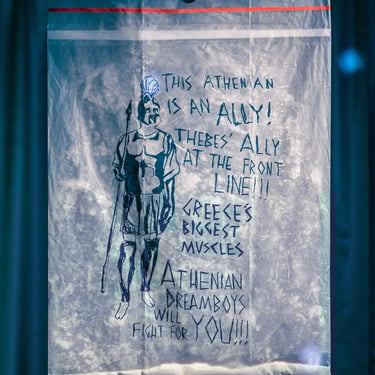 THIS ATHENIAN
IS AN ALLY!
THEBES' ALLY
AT THE FRONT
LINE!!!
GREECE'S
BIGGEST
MUSCLES
ATHENIAN
DREAMBOYS
WILL
FIGHT FOR YOU!!!